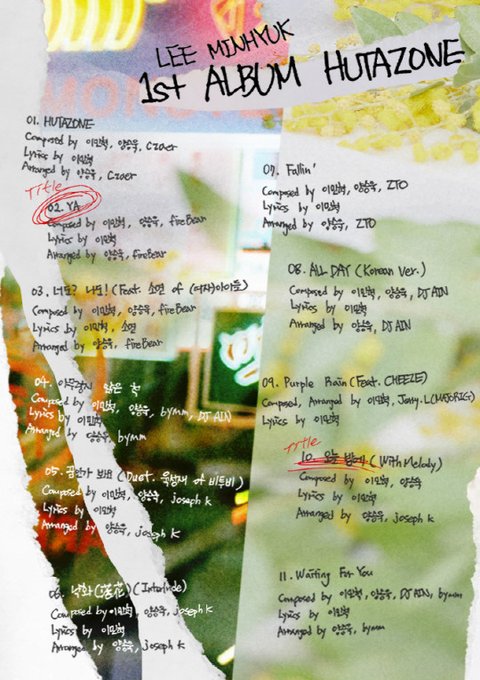 LEE MINHYUK
1st ALBUM HUTAZONE
01. HUTAZONE
Composed by 이민혁, 양승욱, Czaer
Lyrics by 이민혁
Arranged by 양승욱, Czaer
Title
02. YA
Composed by 이민혁, 양승욱, fireBear
Lyrics by 이민혁
Arranged by 양승욱, fireBear
03. 너도? 나도! (Feat. 소연 of (여자)아이들)
Composed by 이민혁, 양승욱, fireBear
Lyrics by 이민혁, 소연
Arranged by 양승욱, fireBear
04. 아무렇지 않은 척
Composed by 이민혁, 양승욱, bymm, DJ AIN
Lyrics by 이민혁
Arranged by 양승욱, bymm
05. 꿈인가 봐요 (Duet. 육성재 of 비투비)
Composed by 이민혁, 양승욱, joseph k
Lyrics by 이민혁
Arranged by 양승욱, joseph k
06. 낙화(落花) (Interlude)
Composed by 이민혁, 양승욱, joseph k
Lyrics by 이민혁
Arranged by 양승욱, joseph k
07. Fallin'
Composed by 이민혁, 양승욱, ZTO
Lyrics by 이민혁
Arranged by 양승욱, ZTO
08. ALL DAY (Korean Ver.)
Composed by 이민혁, 양승욱, DJ AIN
Lyrics by 이민혁
Arranged by 양승욱, DJ AIN
09. Purple Rain (Feat. CHEEZE)
Composed, Arranged by 이민혁, Jerry.L(MAJORIGG)
Lyrics by 이민혁
Title
10. 오늘 밤에 (With Melody)
Composed by 이민혁, 양승욱
Lyrics by 이민혁
Arranged by 양승욱, joseph k
11. Waiting For You
Composed by 이민혁, 양승욱, DJ AIN, bymm
Lyrics by 이민혁
Arranged by 양승욱, bymm